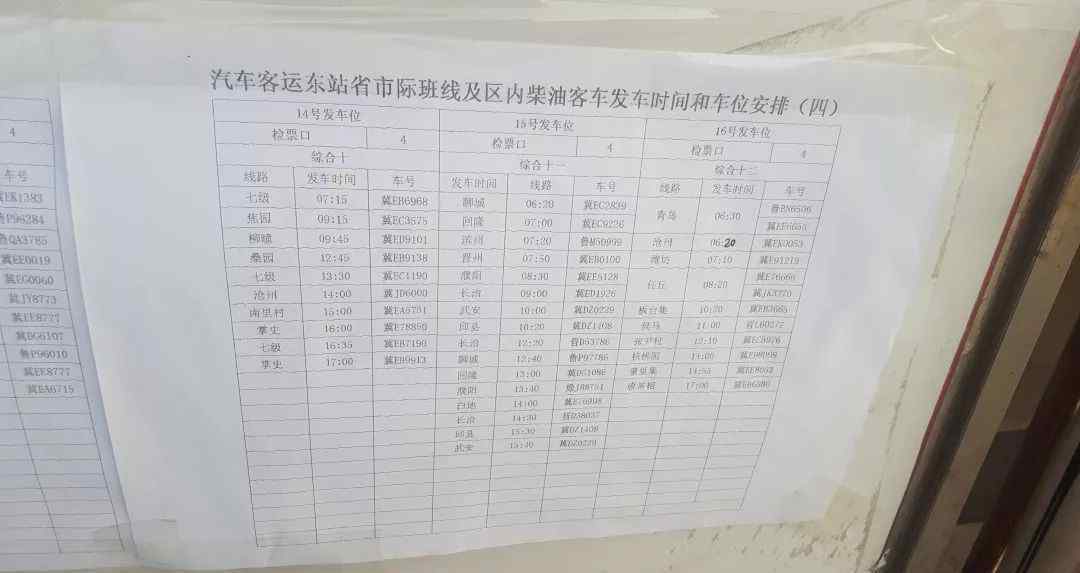 汽车客运东站省市际班线及区内柴油客车发车时间和车位安排（四）
4
14号发车位 15号发车位 16号发车位
检票口 4 检票口 4 检票口 4
车号
综合十 综合十一 综合十二
线路 发车时间 车号 发车时间 线路 车号 线路 发车时间 车号
冀EK1383
七级 07:15 冀EB6968 聊城 06:20 冀EC2839 青岛 06:30 鲁BN6506
鲁P98284
焦园 09:15 冀EC3575 回隆 07:00 冀EC9226
鲁QA3785
柳疃 09:45 冀ED9101 滨州 07:20 鲁M5D999 沧州 06:20 冀EK0053
冀EE0019
桑园 12:45 冀EB9138 晋州 07:50 冀EB0100 潍坊 07:10 冀E91219
冀EG0060
七级 13:30 冀EC1190 濮阳 08:30 冀EE5128 任丘 08:20
冀JY8773
沧州 14:00 冀JD6000 长治 09:00 冀ED1926
冀EE8777
南里村 15:00 冀EA5751 武安 10:00 冀DZ0229 10:20
冀DG6107
掌史 16:00 冀E78850 邱县 10:20 冀DZ1408 侯马 11:00
鲁P96010
七级 16:35 冀EB7190 长治 12:20 晋D53786 张尹村 12:10
冀EE8777
掌史 17:00 冀EB9913 聊城 12:40 鲁P97786 14:05
冀EA6715
回隆 13:00 冀D51086 14:55
濮阳 13:40 豫J88751 17:00
白地 14:00 冀E76998
长治 14:30 晋D38037
邱县 15:30 冀DZ1408
武安 15:40 冀DZ0229